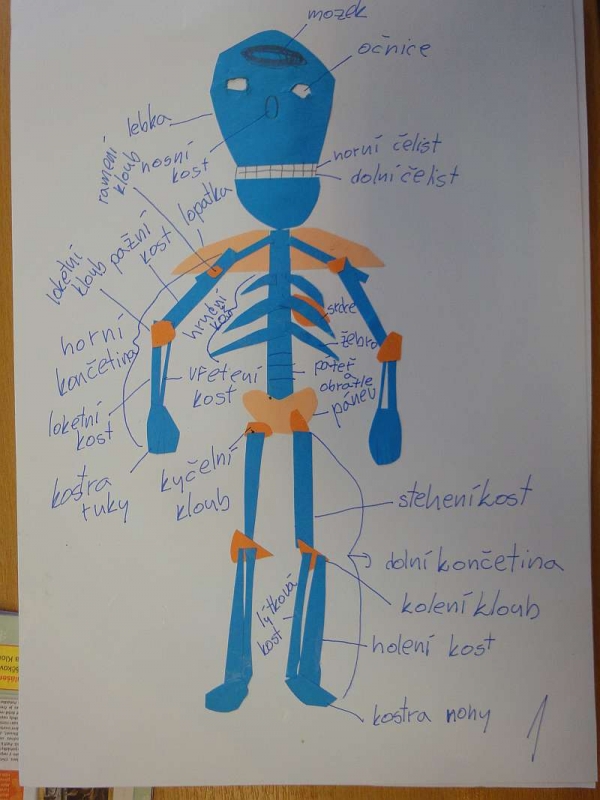 mozek
očnice
lebka
nosní
kost
ramení
kloub
horní čelist
dolní čelist
lopatka
pažní
kost
loketní
kloub
hrudní
koš
srdce
žebro
horní
končetina
vřetení
kost
páteř
a
obratle
pánev
loketní
kost
kostra
ruky
kyčelní
kloub
stehení kost
dolní končetina
kolení kloub
lýtková
kost
holení kost
kostra nohy
1